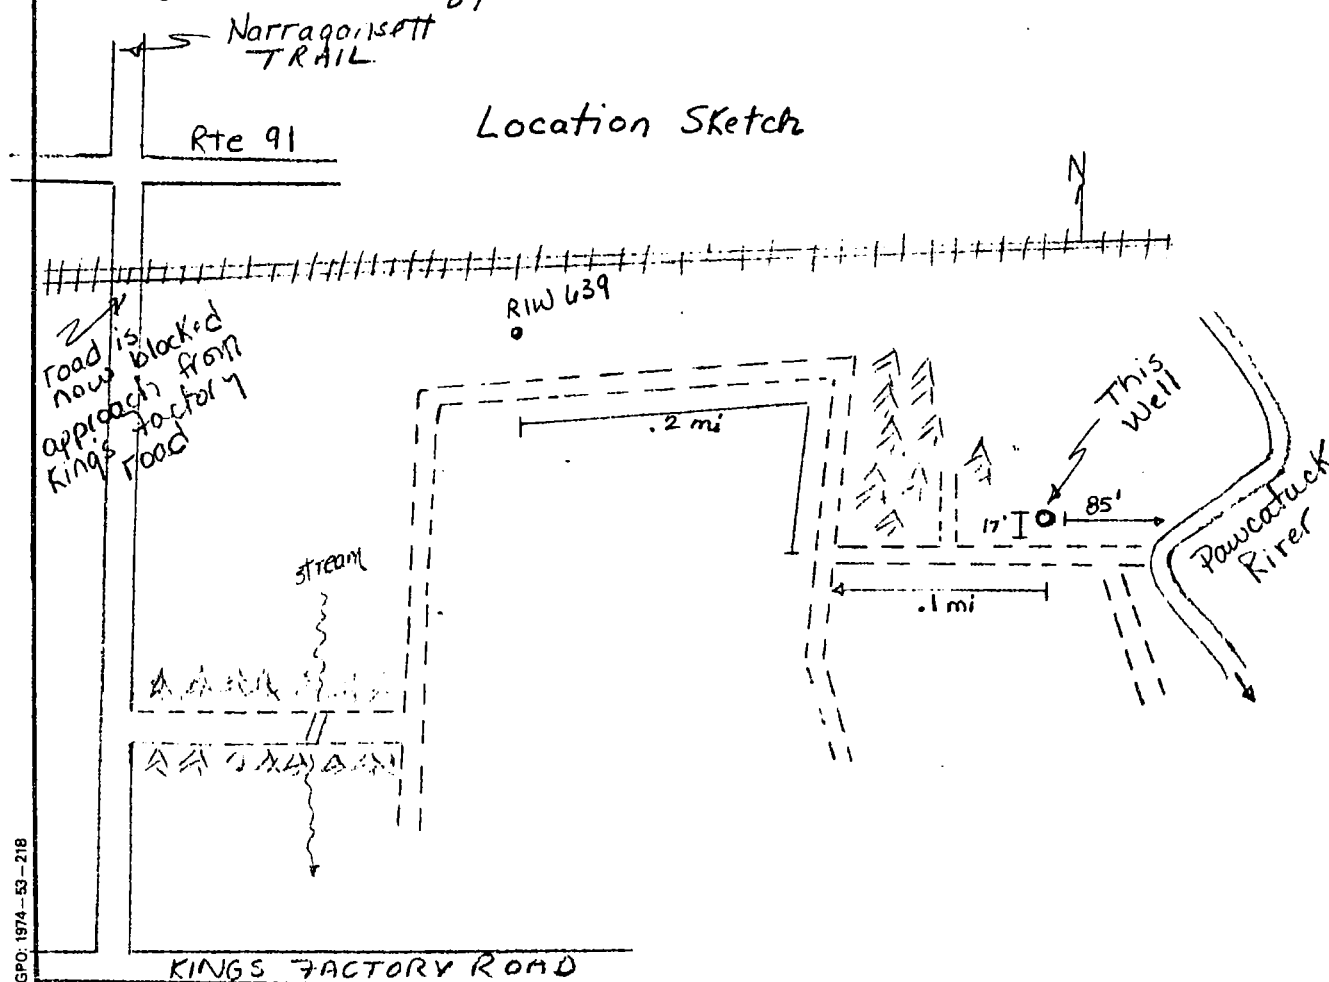 Narragansett
TRAIL.
Location Sketch
Rte 91
N
RIW 639
road is
now blocked
approach from
Kings Factory
road
.2 mi
This
Well
17'
85'
Pawcatuck
River
stream
.1 mi
GPO: 1974-53-218
KINGS FACTORY ROAD